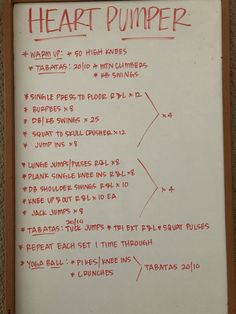 HEART PUMPER
* WARM UP: * 50 HIGH KNEES
* TABATAS: 20/10 * MTN CLIMBERS
* KB SWINGS
* SINGLE PRESS TO FLOOR R&L X 12
* BURPEES X 8
* DB/KB SWINGS X 25
* SQUAT TO SKULL CRUSHER X 12
* JUMP INS X 8
X 4
* LUNGE JUMPS/PULSES R&L X 8
* PLANK SINGLE KNEE INS R&L X 8
* DB SHOULDER SWINGS R&L X 10
* KNEE UP & OUT R&L X 10 EA
* JACK JUMPS X 8
X 4
20/10
* TABATAS: TUCK JUMPS * TRI EXT R&L * SQUAT PULSES
* REPEAT EACH SET 1 TIME THROUGH
* YOGA BALL: * PIKES/KNEE INS
* CRUNCHES
TABATAS 20/10